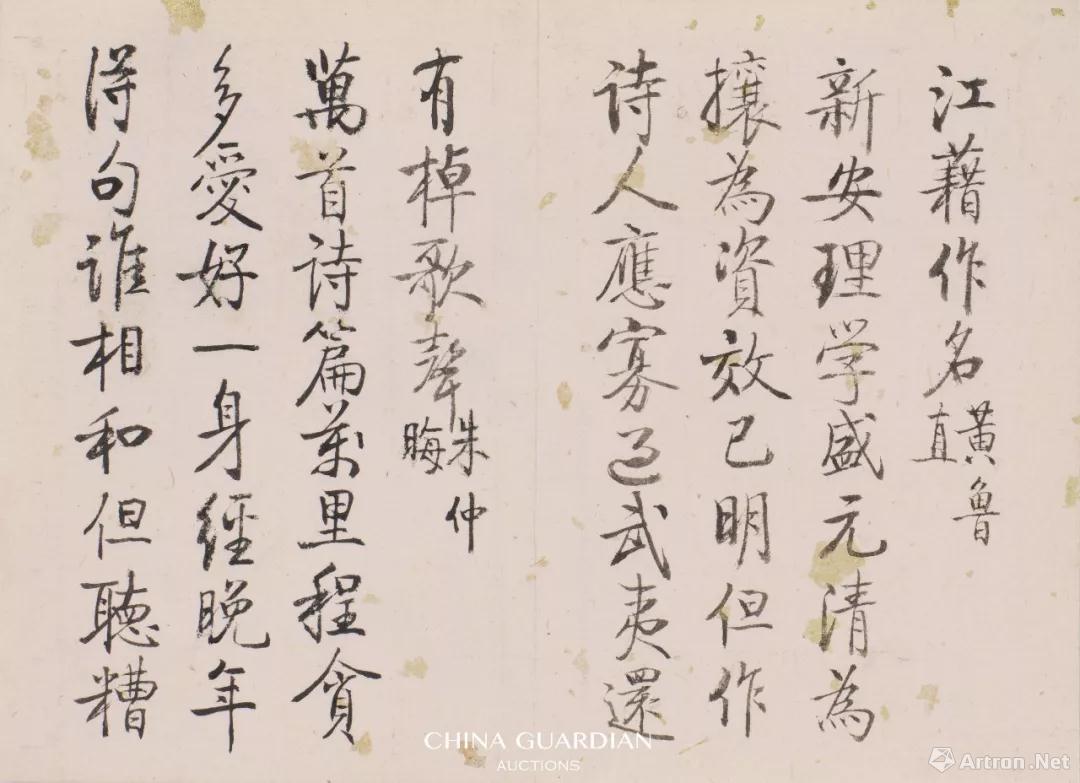 江藉作名黃魯直
新安理学盛元清為
攘為資效已明但作
诗人應寡过武夷還
有棹歌聲朱仲晦
萬首诗篇萬里程貪
多愛好一身經晚年
得句谁相和但聽糟
CHINA GUARDIAN
AUCTIONS
Artron.Net